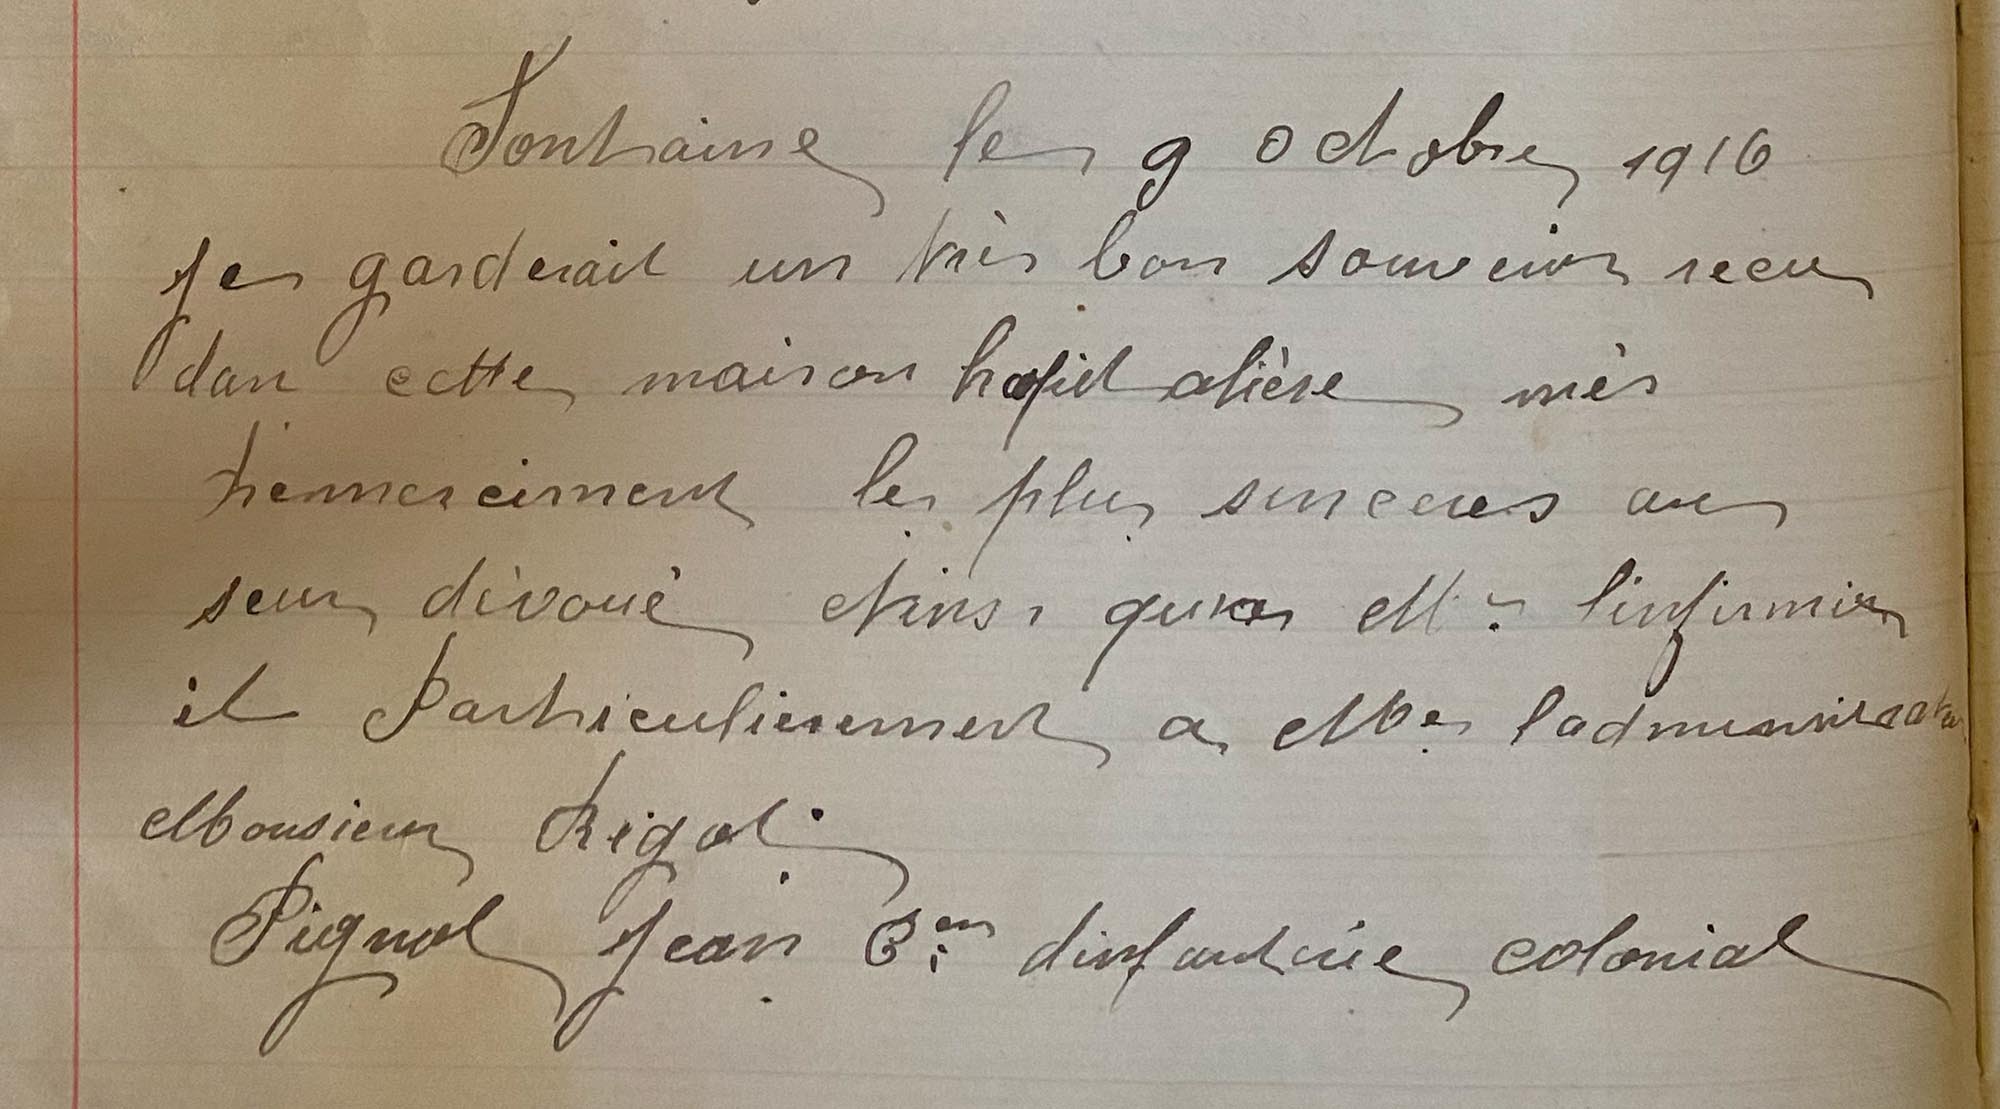 Fontaine le 9 Octobre 1916
Je garderait un très bon souvenir recu
dan cette maison hopitalière mès
remerciment les plus sinceres au
seur dèvouè Ainsi que Mr l'infirmier
et Particulierement a Mr
Monsieur Rigal.
Pignol Jean 6em dinfanterie colonial